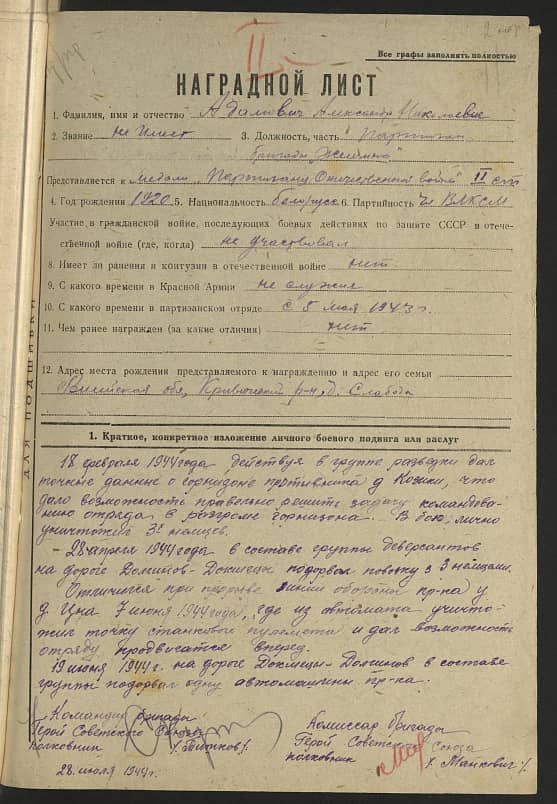 2
II
Все графы заполнять полностью
НАГРАДНОЙ ЛИСТ
1. Фамилия, имя и отчество Адамович Александр Николаевич
2. Звание не имеет 3. Должность, часть Партизан
бригады "Железняк"
Представляется к медали "Партизану Отечественной войны" II ст
4. Год рождения 1920 5. Национальность белорусс 6. Партийность чл ВЛКСМ
Участие в гражданской войне, последующих боевых действиях по защите СССР и отече-
ственной войне (где, когда) не участвовал
8. Имеет ли ранения и контузии в отечественной войне нет
9. С какого времени в Красной Армии не служил
10. С какого времени в партизанском отряде с 5 мая 1943 г.
11. Чем ранее награжден (за какие отличия) нет
12. Адрес места рождения представляемого к награждению и адрес его семьи
Вилейская обл, Кривичский р-н, д. Слобода
ДЛЯ ПОДШИВКИ
1. Краткое, конкретное изложение личного боевого подвига или заслуг
18 февраля 1944 года действуя в группе разведки дал
точные данные о горнизоне противника д Козики, что
дало возможность правельно решить задачу командова-
нию отряда в разгроме горнизона. В бою, лично
уничтожел 3х немцев.
- 28 апреля 1944 годы в составе группы деверсантов
на дороге Долгинов-Докшицы подорвал повозку з 3 немцами.
Отличился при прорыве линии обороны пр-ка у
д. Цна 7 июня 1944 года, где из автомата уничто-
жил точку станкового пулемета и дал возможность
отряду продвигатся вперед.
19 июня 1944 г. на дороге Докшицы-Долгинов в составе
группы подорвал одну автомашину пр-ка.
Командир бригады
Герой Советского Союза
полковник /Титков/
28 июля 1944 г.
Комиссар бригады
Герой Советского Союза
полковник /Манкович/